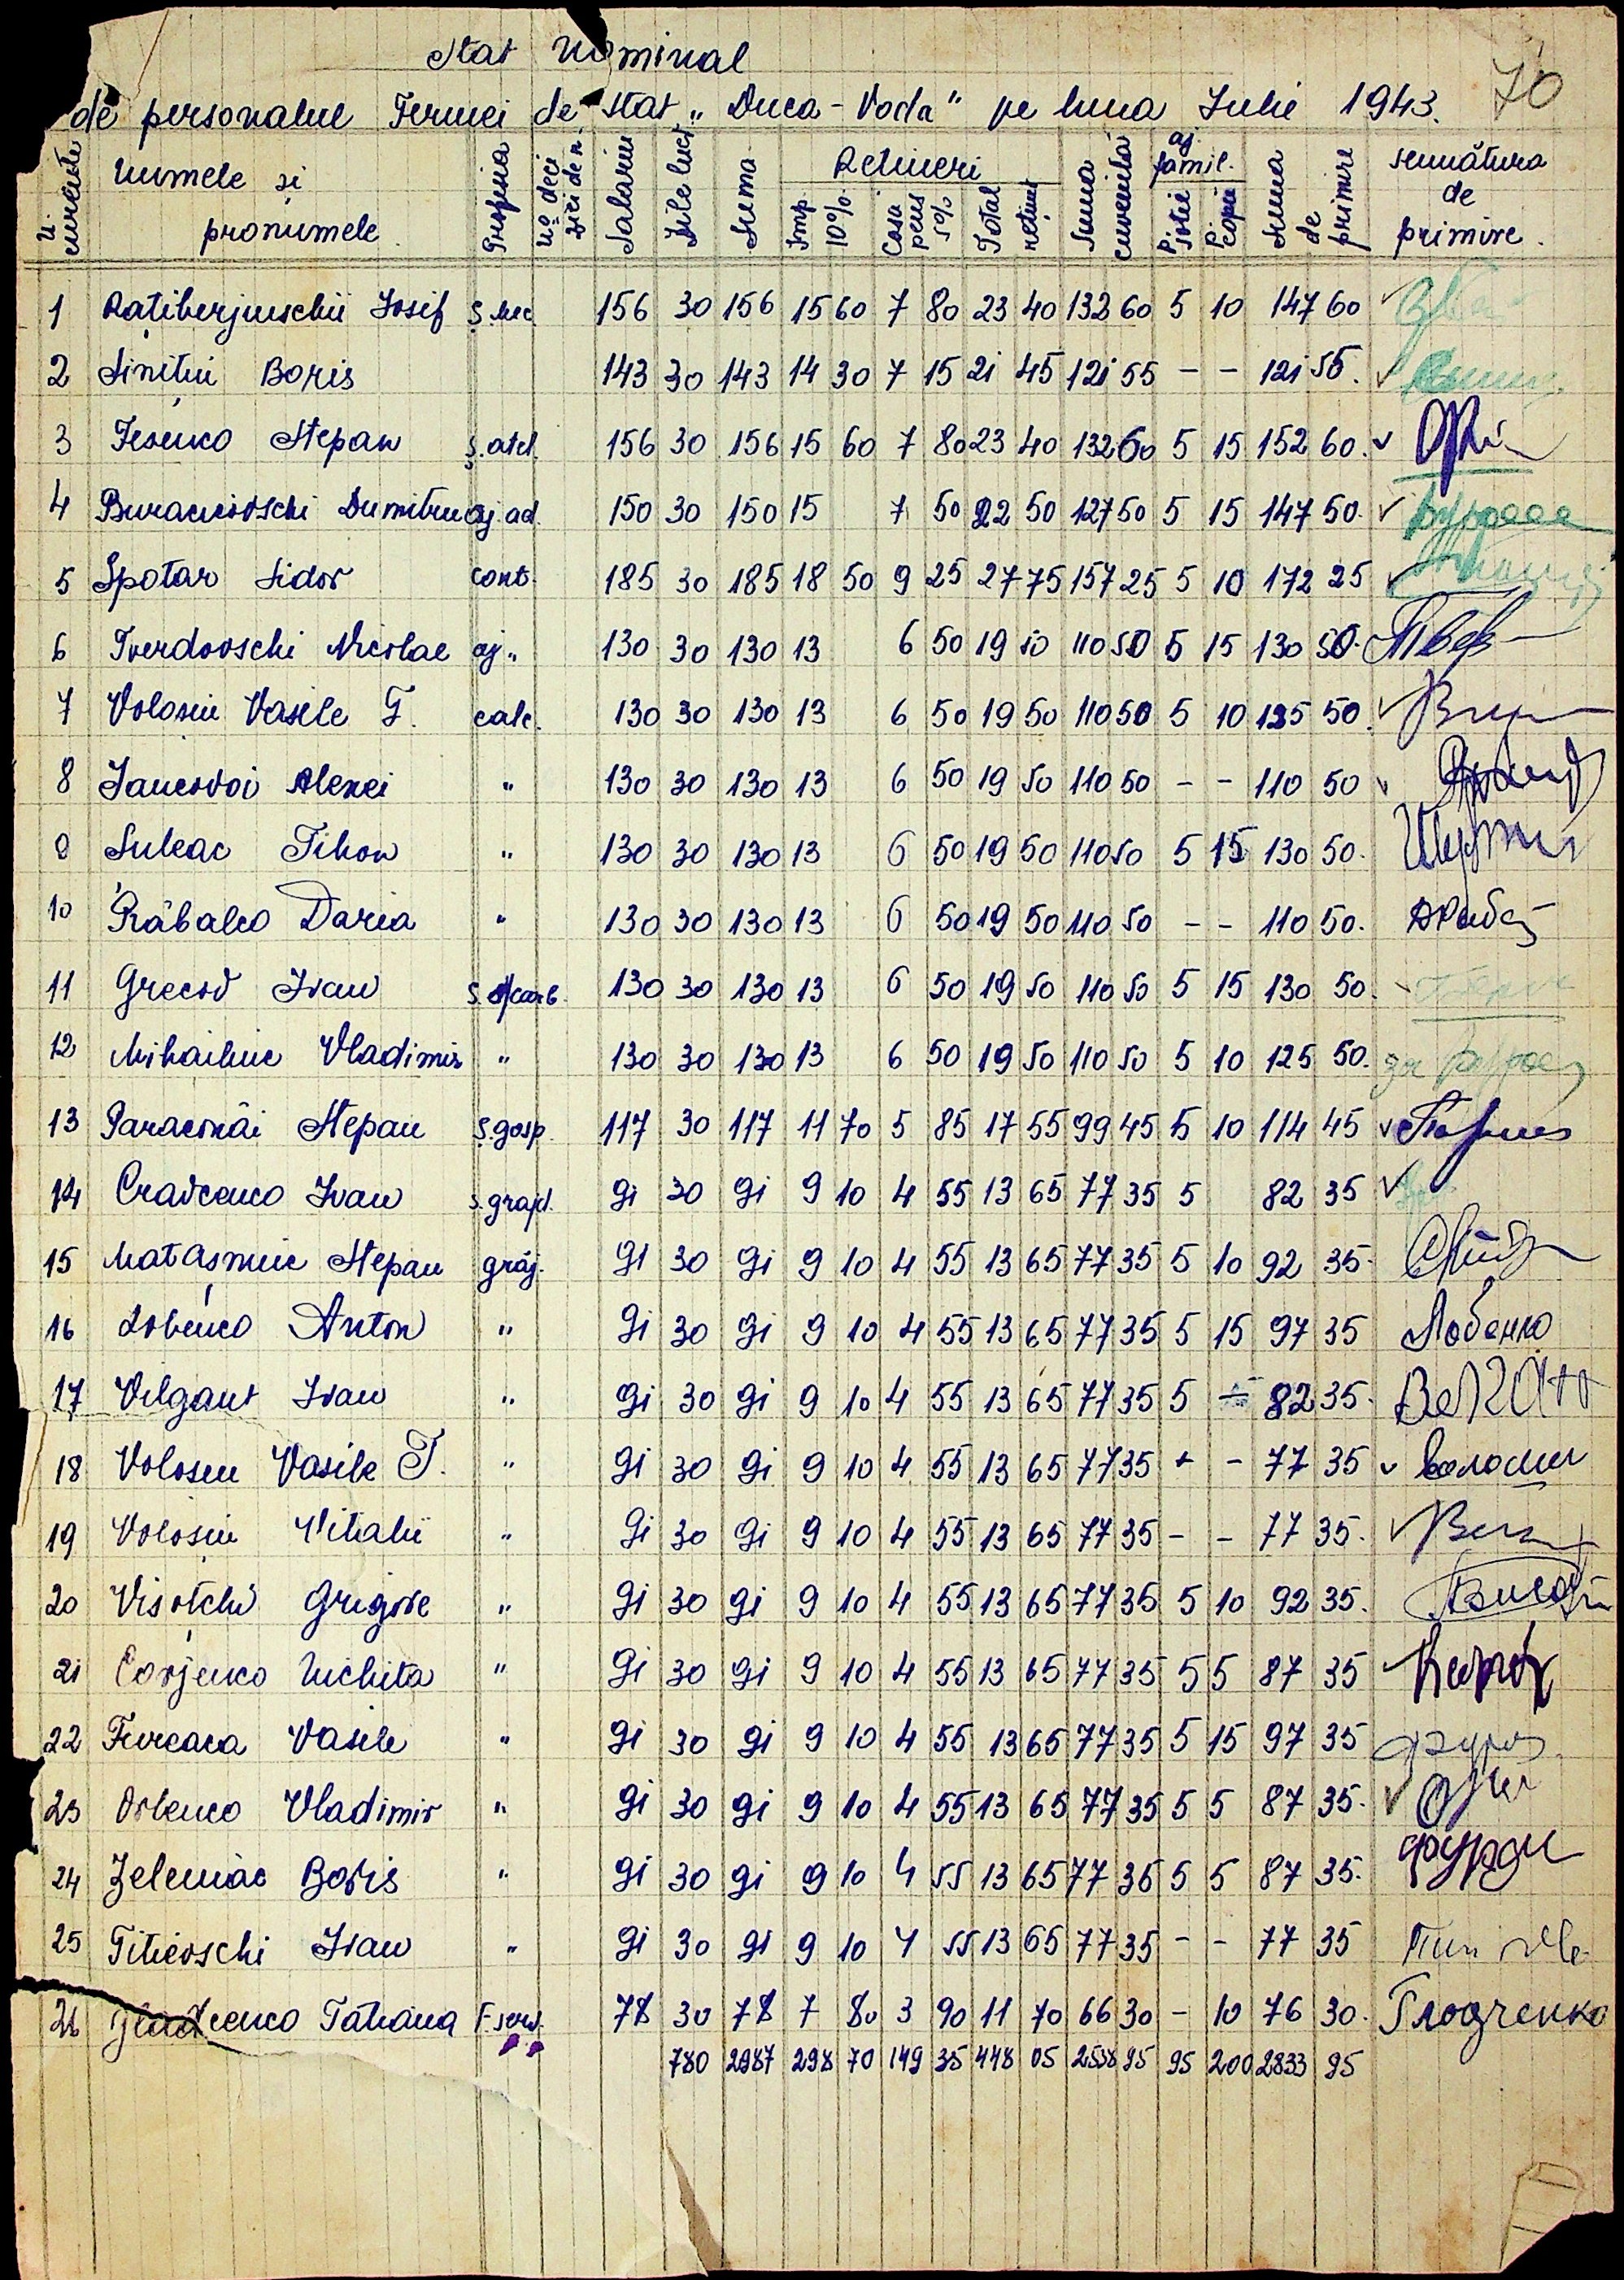 70
Stat Nominal
de personalul Fermei de Stat „Duca-Voda" pe luna Iulie 1943.
N curente Numele și pronumele Salariu Zile lucr Suma Retineri Imp 10% Casa pens 5% Total retinut Suma cuvenită aj. famil. P. sotie P. copii Suma de primire semnătura de primire.
1 Ratiberjinschii Iosif Ș. mec 156 30 156 15 60 7 80 23 40 132 60 5 10 147 60
2 Sinitui Boris 143 30 143 14 30 7 15 21 45 121 55 - - 121 55.
3 Iesenco Stepan Ș. atel. 156 30 156 15 60 7 80 23 40 132 60 5 15 152 60.
4 Buracicovschi Dumitru aj. ad. 150 30 150 15 7 50 22 50 127 50 5 15 147 50.
5 Spotar Sidor cont. 185 30 185 18 50 9 25 27 75 157 25 5 10 172 25
6 Tverdovschi Nicolae aj „ 130 30 130 13 6 50 19 50 110 50 5 15 130 50.
7 Volosin Vasile G. calc. 130 30 130 13 6 50 19 50 110 50 5 10 125 50.
8 Iancovoi Alexei " 130 30 130 13 6 50 19 50 110 50 - - 110 50
9 Suleac Tihon " 130 30 130 13 6 50 19 50 110 50 5 15 130 50.
10 Râbalco Daria " 130 30 130 13 6 50 19 50 110 50 - - 110 50.
11 Grecov Ivan 130 30 130 13 6 50 19 50 110 50 5 15 130 50.
12 Mihailiuc Vladimir " 130 30 130 13 6 50 19 50 110 50 5 10 125 50.
13 Paraconâi Stepan Ș. gosp. 117 30 117 11 70 5 85 17 55 99 45 5 10 114 45
14 Cravcenco Ivan s. grajd. 91 30 91 9 10 4 55 13 65 77 35 5 82 35
15 Matasniuc Stepan grăj. 91 30 91 9 10 4 55 13 65 77 35 5 10 92 35.
16 Lobenco Anton " 91 30 91 9 10 4 55 13 65 77 35 5 15 97 35 Лобенко
17 Vilgant Ivan " 91 30 91 9 10 4 55 13 65 77 35 5 - 82 35.
18 Volosin Vasile T. " 91 30 91 9 10 4 55 13 65 77 35 - - 77 35 Волошин
19 Volosin Vitalii " 91 30 91 9 10 4 55 13 65 77 35 - - 77 35.
20 Visotchi Grigore " 91 30 91 9 10 4 55 13 65 77 35 5 10 92 35.
21 Corjenco Nichita " 91 30 91 9 10 4 55 13 65 77 35 5 5 87 35
22 Furcaca Vasile " 91 30 91 9 10 4 55 13 65 77 35 5 15 97 35
23 Orlenco Vladimir " 91 30 91 9 10 4 55 13 65 77 35 5 5 87 35.
24 Zeleniac Boris " 91 30 91 9 10 4 55 13 65 77 35 5 5 87 35.
25 Titievschi Ivan " 91 30 91 9 10 4 55 13 65 77 35 - - 77 35
26 Gladcenco Tatiana F. serv. 78 30 78 7 80 3 90 11 70 66 30 - 10 76 30. Гладченко
780 2987 298 70 149 35 448 05 2538 95 95 200 2833 95